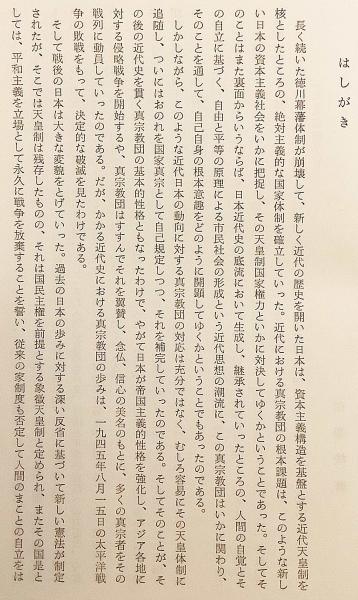 はしがき
長く続いた徳川幕藩体制が崩壊して、新しく近代の歴史を開いた日本は、資本主義構造を基盤とする近代天皇制を
核としたところの、絶対主義的な国家体制を確立していった。近代における真宗教団の根本課題は、このような新し
い日本の資本主義社会をいかに把捉し、その天皇制国家権力といかに対決してゆくかということであった。そしてそ
のことはまた裏面からいうならば、日本近代史の底流において生成し、継承されていったところの、人間の自覚とそ
の自立に基づく、自由と平等の原理による市民社会の形成という近代思想の潮流に、この真宗教団はいかに関わり、
そのことを通して、自己自身の根本意趣をどのように開顕してゆくかということでもあったのである。
しかしながら、このような近代日本の動向に対する真宗教団の対応は充分ではなく、むしろ容易にその天皇体制に
追随し、ついにはおのれを国家真宗として自己規定しつつ、それを補完していったのである。そしてそのことが、そ
の後の近代史を貫く真宗教団の基本的性格ともなったわけで、やがて日本が帝国主義的性格を強化し、アジア各地に
対する侵略戦争を開始するや、真宗教団はすすんでそれを翼賛し、念仏、信心の美名のもとに、多くの真宗者をその
戦列に動員していったのである。だが、かかる近代史における真宗教団の歩みは、一九四五年八月一五日の太平洋戦
争の敗戦をもって、決定的な破滅を見たわけである。
そして戦後の日本は大きな変貌をとげていった。過去の日本の歩みに対する深い反省に基づいて新しい憲法が制定
されたが、そこでは天皇制は残存したものの、それは国民主権を前提とする象徴天皇制と定められ、またその国是と
しては、平和主義を立場として永久に戦争を放棄することを誓い、従来の家制度も否定して人間のまことの自立をは